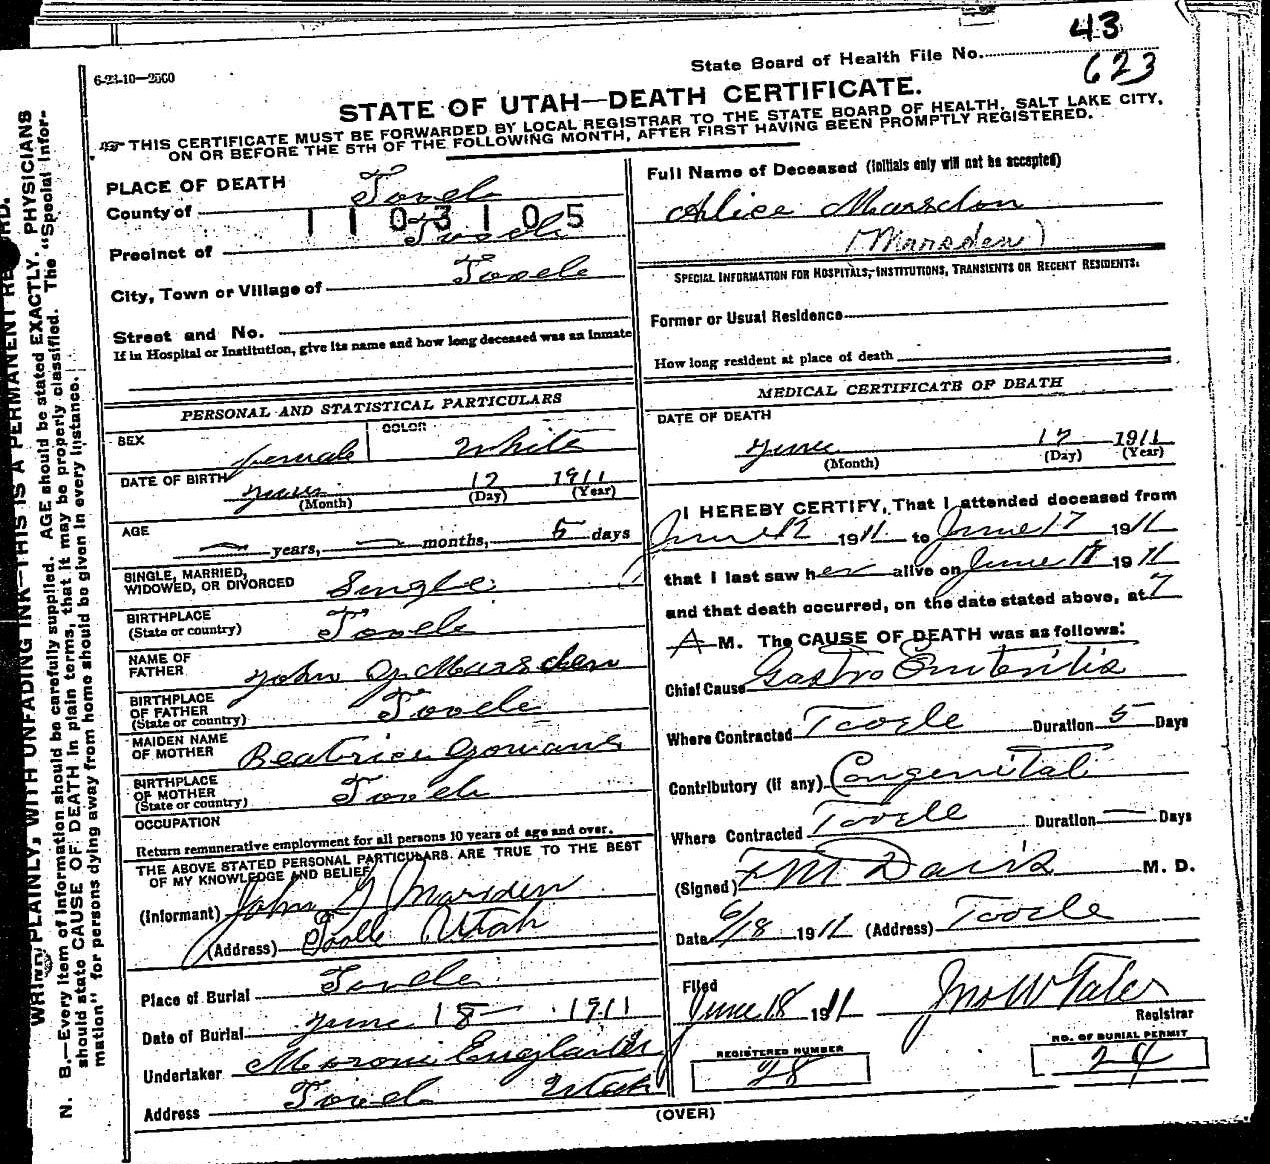 43
State Board of Health File No. 623
6-23-10—2500
STATE OF UTAH—DEATH CERTIFICATE.
THIS CERTIFICATE MUST BE FORWARDED BY LOCAL REGISTRAR TO THE STATE BOARD OF HEALTH, SALT LAKE CITY,
ON OR BEFORE THE 5TH OF THE FOLLOWING MONTH, AFTER FIRST HAVING BEEN PROMPTLY REGISTERED.
PLACE OF DEATH
County of Tooele
1103105
Precinct of Tooele
City, Town or Village of Tooele
Street and No.
If in Hospital or Institution, give its name and how long deceased was an inmate
PERSONAL AND STATISTICAL PARTICULARS
SEX female COLOR White
DATE OF BIRTH June 12 1911
(Month) (Day) (Year)
AGE — years, — months, 5 days
SINGLE, MARRIED,
WIDOWED, OR DIVORCED Single
BIRTHPLACE
(State or country) Tooele
NAME OF
FATHER John G. Marsden
BIRTHPLACE
OF FATHER
(State or country) Tooele
MAIDEN NAME
OF MOTHER Beatrice Gowans
BIRTHPLACE
OF MOTHER
(State or country) Tooele
OCCUPATION
Return remunerative employment for all persons 10 years of age and over.
THE ABOVE STATED PERSONAL PARTICULARS ARE TRUE TO THE BEST
OF MY KNOWLEDGE AND BELIEF
(Informant) John G Marsden
(Address) Tooele Utah
Place of Burial Tooele
Date of Burial June 18 1911
Undertaker Moroni England
Address Tooele Utah
Full Name of Deceased (Initials only will not be accepted)
Alice Marsdon
(Marsden)
SPECIAL INFORMATION FOR HOSPITALS, INSTITUTIONS, TRANSIENTS OR RECENT RESIDENTS.
Former or Usual Residence
How long resident at place of death
MEDICAL CERTIFICATE OF DEATH
DATE OF DEATH
June 17 1911
(Month) (Day) (Year)
I HEREBY CERTIFY, That I attended deceased from
June 12 1911 to June 17 1911
that I last saw her alive on June 1911
and that death occurred, on the date stated above, at 7
A M. The CAUSE OF DEATH was as follows:
Chief Cause Gastro Enteritis
Where Contracted Tooele Duration 5 Days
Contributory (if any) Congenital
Where Contracted Tooele Duration — Days
(Signed) F M Davis M. D.
Date 6/18 1911 (Address) Tooele
Filed
June 18 1911 Jno W Tate
Registrar
REGISTERED NUMBER
28
NO. OF BURIAL PERMIT
24
(OVER)
WRITE PLAINLY, WITH UNFADING INK—THIS IS A PERMANENT RECORD.
N. B.—Every item of information should be carefully supplied. AGE should be stated EXACTLY. PHYSICIANS
should state CAUSE OF DEATH in plain terms, that it may be properly classified. The "Special Infor-
mation" for persons dying away from home should be given in every instance.